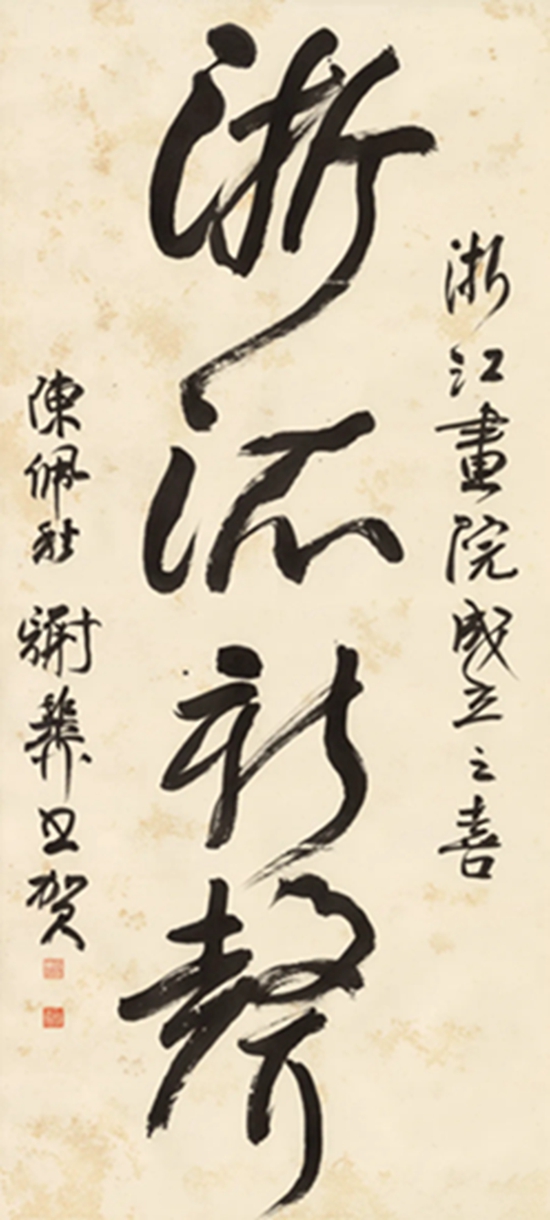 浙江畫院成立之喜
浙派新聲
陳佩秋 謝 賀